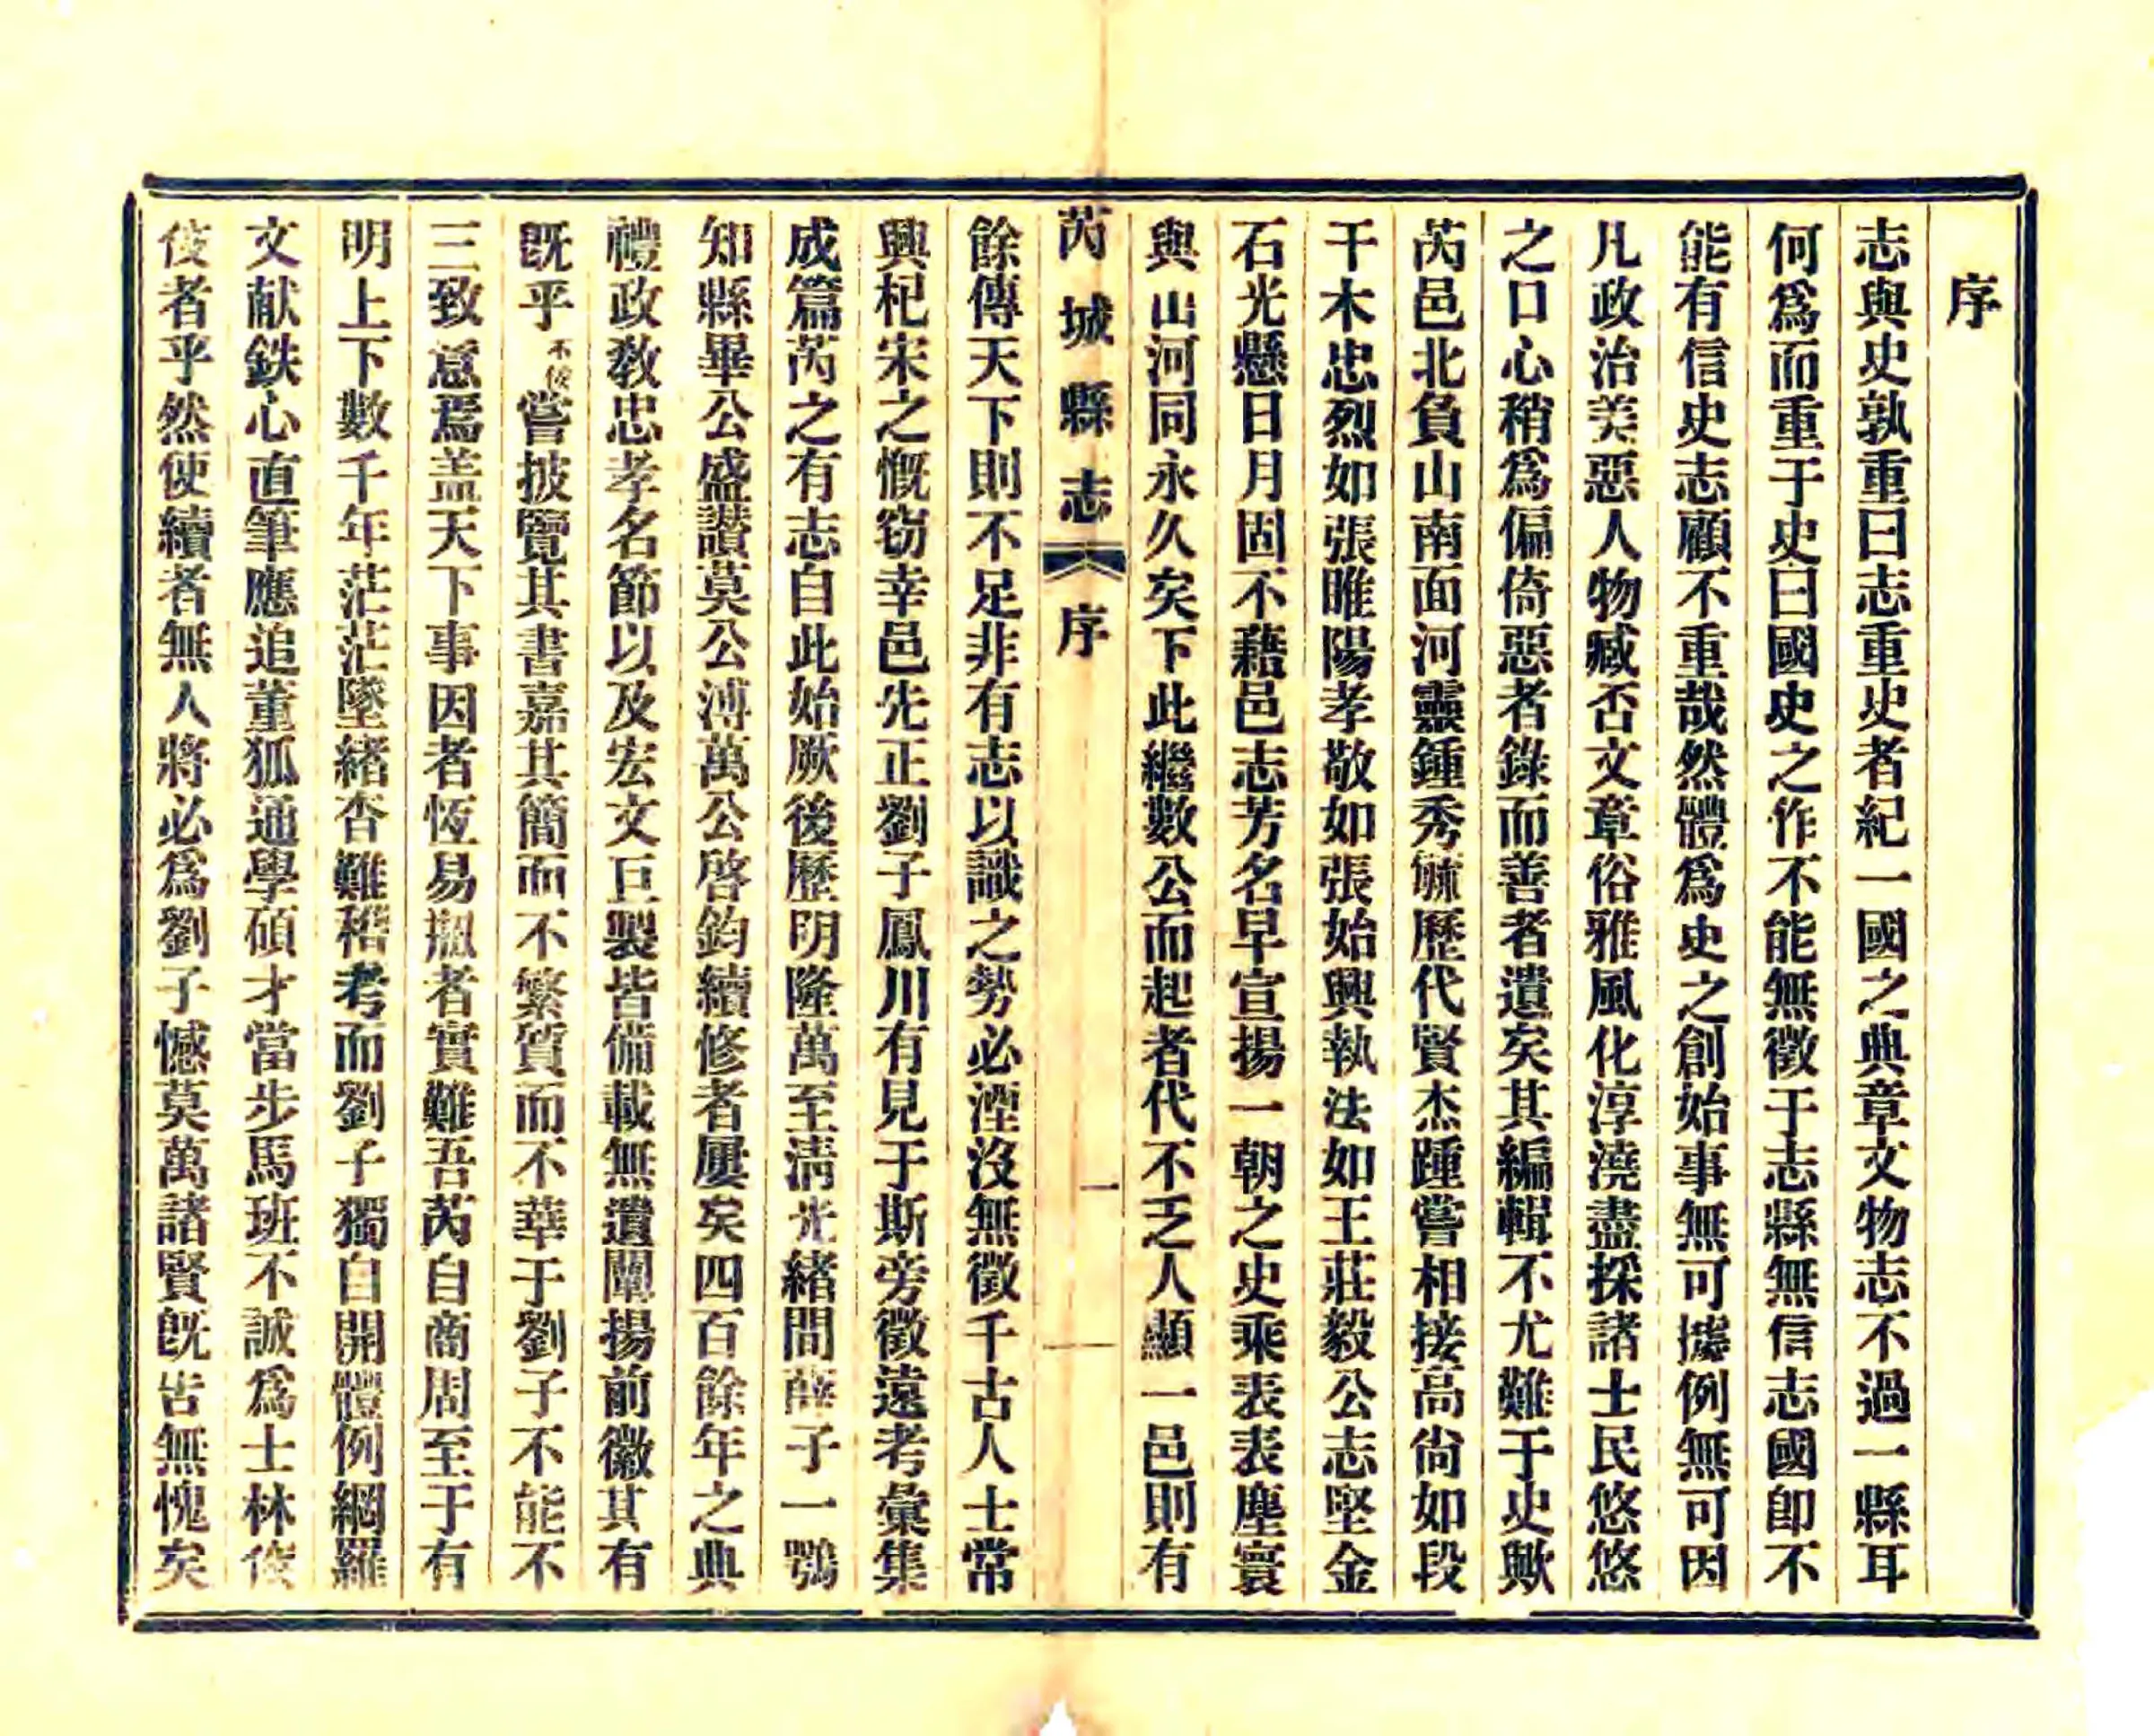 序
志與史孰重曰志重史者紀一國之典章文物志不過一縣耳
何爲而重于史曰國史之作不能無徵于志縣無信志國卽不
能有信史志顧不重哉然體爲史之創始事無可據例無可因
凡政治美惡人物臧否文章俗雅風化淳澆盡採諸士民悠悠
之口心稍爲偏倚惡者錄而善者遺矣其編輯不尤難于史歟
芮邑北負山南面河靈鍾秀毓歷代賢杰踵嘗相接高尙如段
干木忠烈如張睢陽孝敬如張始興執法如王莊毅公志堅金
石光懸日月固不藉邑志芳名早宣揚一朝之史乘表表塵寰
與山河同永久矣下此繼數公而起者代不乏人顯一邑則有
芮城縣志 序 一
餘傳天下則不足非有志以識之勢必湮沒無徵千古人士常
興杞宋之慨窃幸邑先正劉子鳳川有見于斯旁徵遠考彙集
成篇芮之有志自此始厥後歷明隆萬至淸光緒間薛子一鶚
知縣畢公盛讚莫公溥萬公啓鈞續修者屢矣四百餘年之典
禮政敎忠孝名節以及宏文巨製皆備載無遺闡揚前徽其有
旣乎不佞嘗披覽其書嘉其簡而不繁質而不華于劉子不能不
三致意焉盖天下事因者恆易刱者實難吾芮自商周至于有
明上下數千年茫茫墜緒杳難稽考而劉子獨自開體例網羅
文献鉄心直筆應追董狐通學碩才當步馬班不誠爲士林佼
佼者乎然使續者無人將必爲劉子憾莫萬諸賢旣告無愧矣